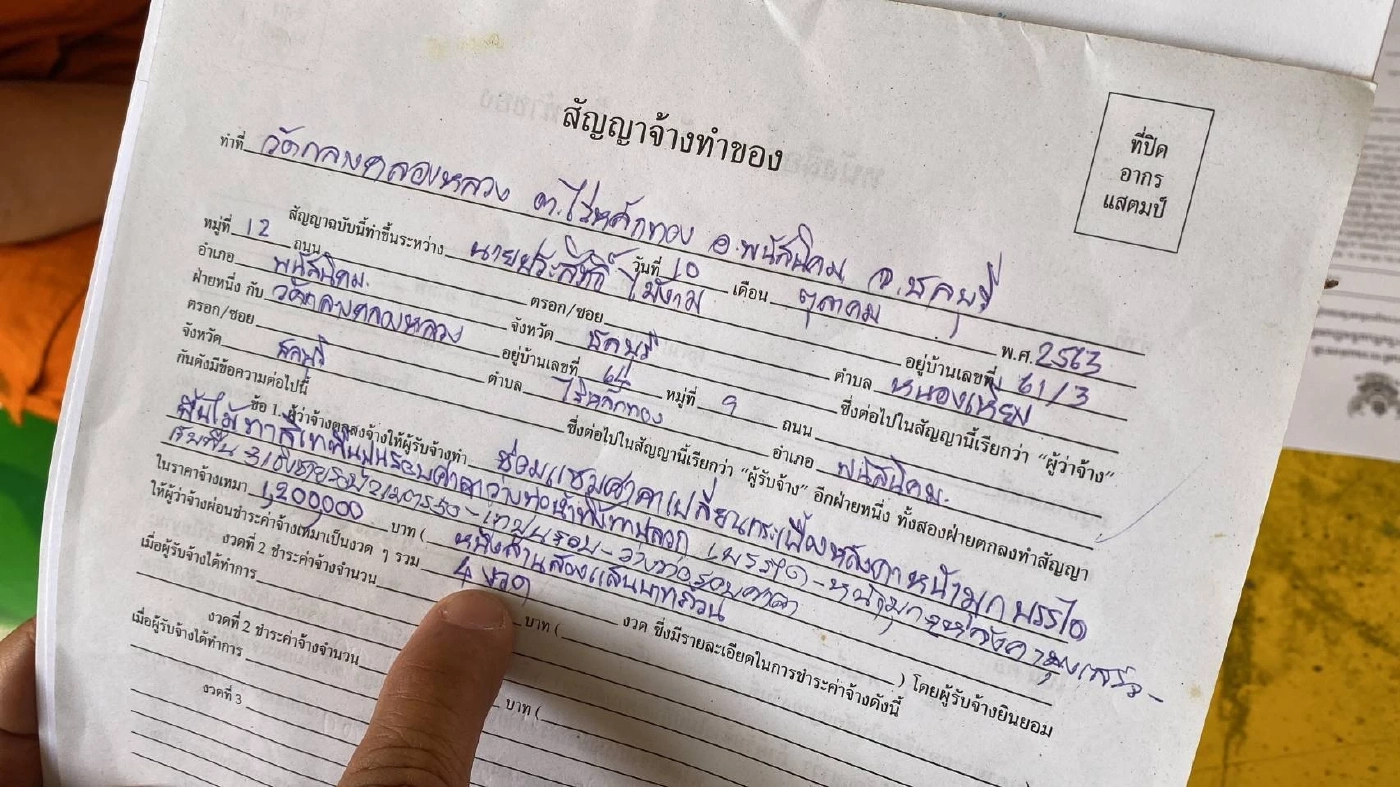 สัญญาจ้างทำของ
ที่ปิด
อากร
แสตมป์
ทำที่ วัดกลางคลองหลวง ต.ไร่หลักทอง อ.พนัสนิคม จ.ชลบุรี
วันที่ 10 เดือน ตุลาคม พ.ศ. 2563
สัญญาฉบับนี้ทำขึ้นระหว่าง นายประสิทธิ์ ไม้งาม อยู่บ้านเลขที่ 61/3
หมู่ที่ 12 ถนน ตรอก/ซอย ตำบล หนองเหียง
อำเภอ พนัสนิคม. จังหวัด ชลบุรี ซึ่งต่อไปในสัญญานี้เรียกว่า "ผู้ว่าจ้าง"
ฝ่ายหนึ่ง กับ วัดกลางคลองหลวง อยู่บ้านเลขที่ 64 หมู่ที่ 9 ถนน
ตรอก/ซอย ตำบล ไร่หลักทอง อำเภอ พนัสนิคม.
จังหวัด ชลบุรี ซึ่งต่อไปในสัญญานี้เรียกว่า "ผู้รับจ้าง" อีกฝ่ายหนึ่ง ทั้งสองฝ่ายตกลงทำสัญญา
กันดังมีข้อความต่อไปนี้
ข้อ 1. ผู้ว่าจ้างตกลงจ้างให้ผู้รับจ้างทำ ซ่อมแซมศาลาเปลี่ยนกระเบื้องหลังคาหน้ามุกบรรได
ทาสีเทพื้นปูนรอบศาลาวางท่อน้ำทิ้ง
ในราคาจ้างเหมา 1,200,000 บาท ( หนึ่งล้านสองแสนบาทถ้วน ) โดยผู้รับจ้างยินยอม
ให้ผู้ว่าจ้างผ่อนชำระค่าจ้างเหมาเป็นงวด ๆ รวม 4 งวด งวด ซึ่งมีรายละเอียดในการชำระค่าจ้างดังนี้
งวดที่ 2 ชำระค่าจ้างจำนวน บาท (
เมื่อผู้รับจ้างได้ทำการ
งวดที่ 2 ชำระค่าจ้างจำนวน บาท (
เมื่อผู้รับจ้างได้ทำการ
งวดที่ 3